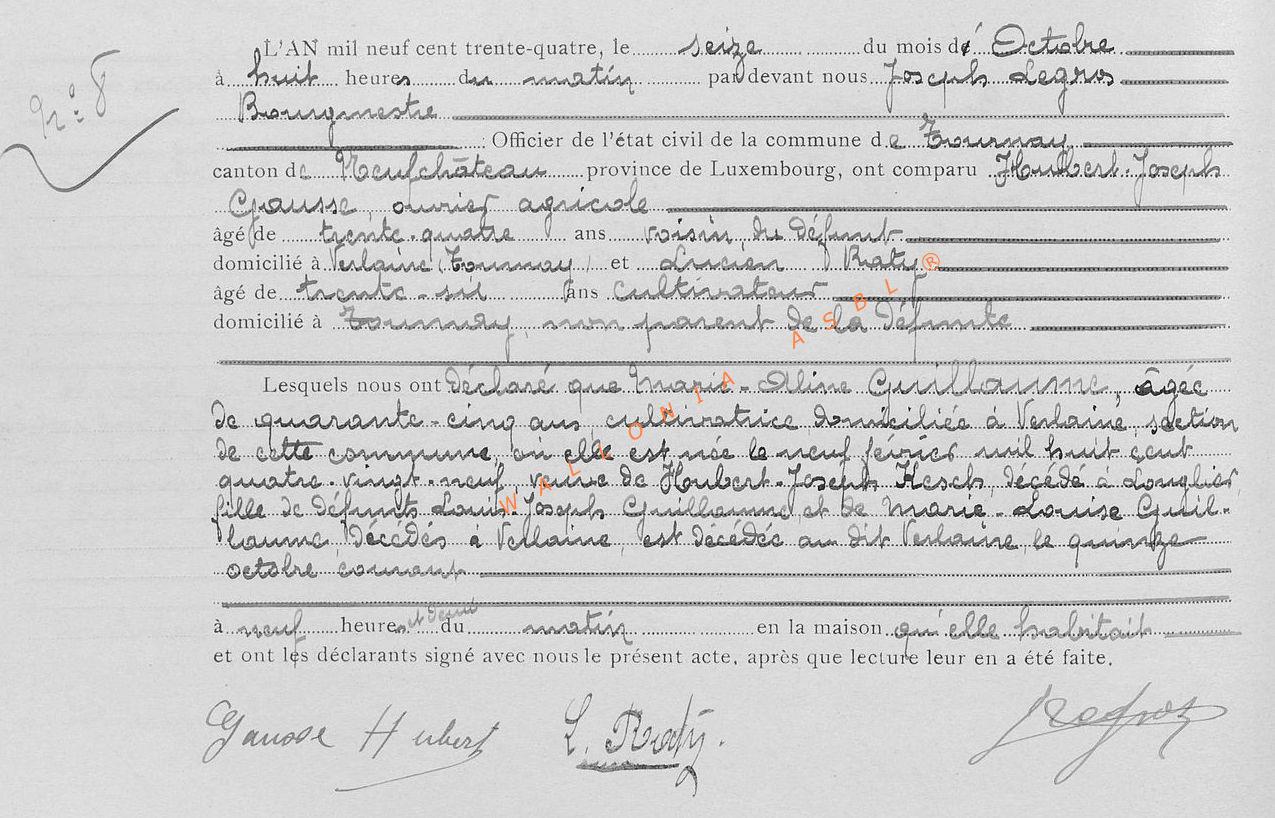 N° 8
L'AN mil neuf cent trente-quatre, le seize du mois de Octobre
à huit heures du matin par devant nous Joseph Legros
Bourgmestre
Officier de l'état civil de la commune de Tournay
canton de Neufchâteau province de Luxembourg, ont comparu Hubert-Joseph
Gausse, ouvrier agricole
âgé de trente-quatre ans voisin du défunt
domicilié à Verlaine (Tournay) et Lucien Raty
âgé de trente-six ans cultivateur
domicilié à Tournay, non parent de la défunte
Lesquels nous ont déclaré que Marie-Aline Guillaume, âgée
de quarante-cinq ans, cultivatrice, domiciliée à Verlaine, section
de cette commune, où elle est née le neuf février mil huit cent
quatre-vingt-neuf, veuve de Houbert-Joseph Hesch, décédé à Longlier,
fille de défunts Louis-Joseph Guillaume, et de Marie-Louise Guil-
laume, décédés à Verlaine, est décédée au dit Verlaine, le quinze
octobre courant
à neuf heures et demi du matin en la maison qu'elle habitait
et ont les déclarants signé avec nous le présent acte, après que lecture leur en a été faite.
Gausse Hubert L. Raty. J Legros
WALLONIA ASBL ®